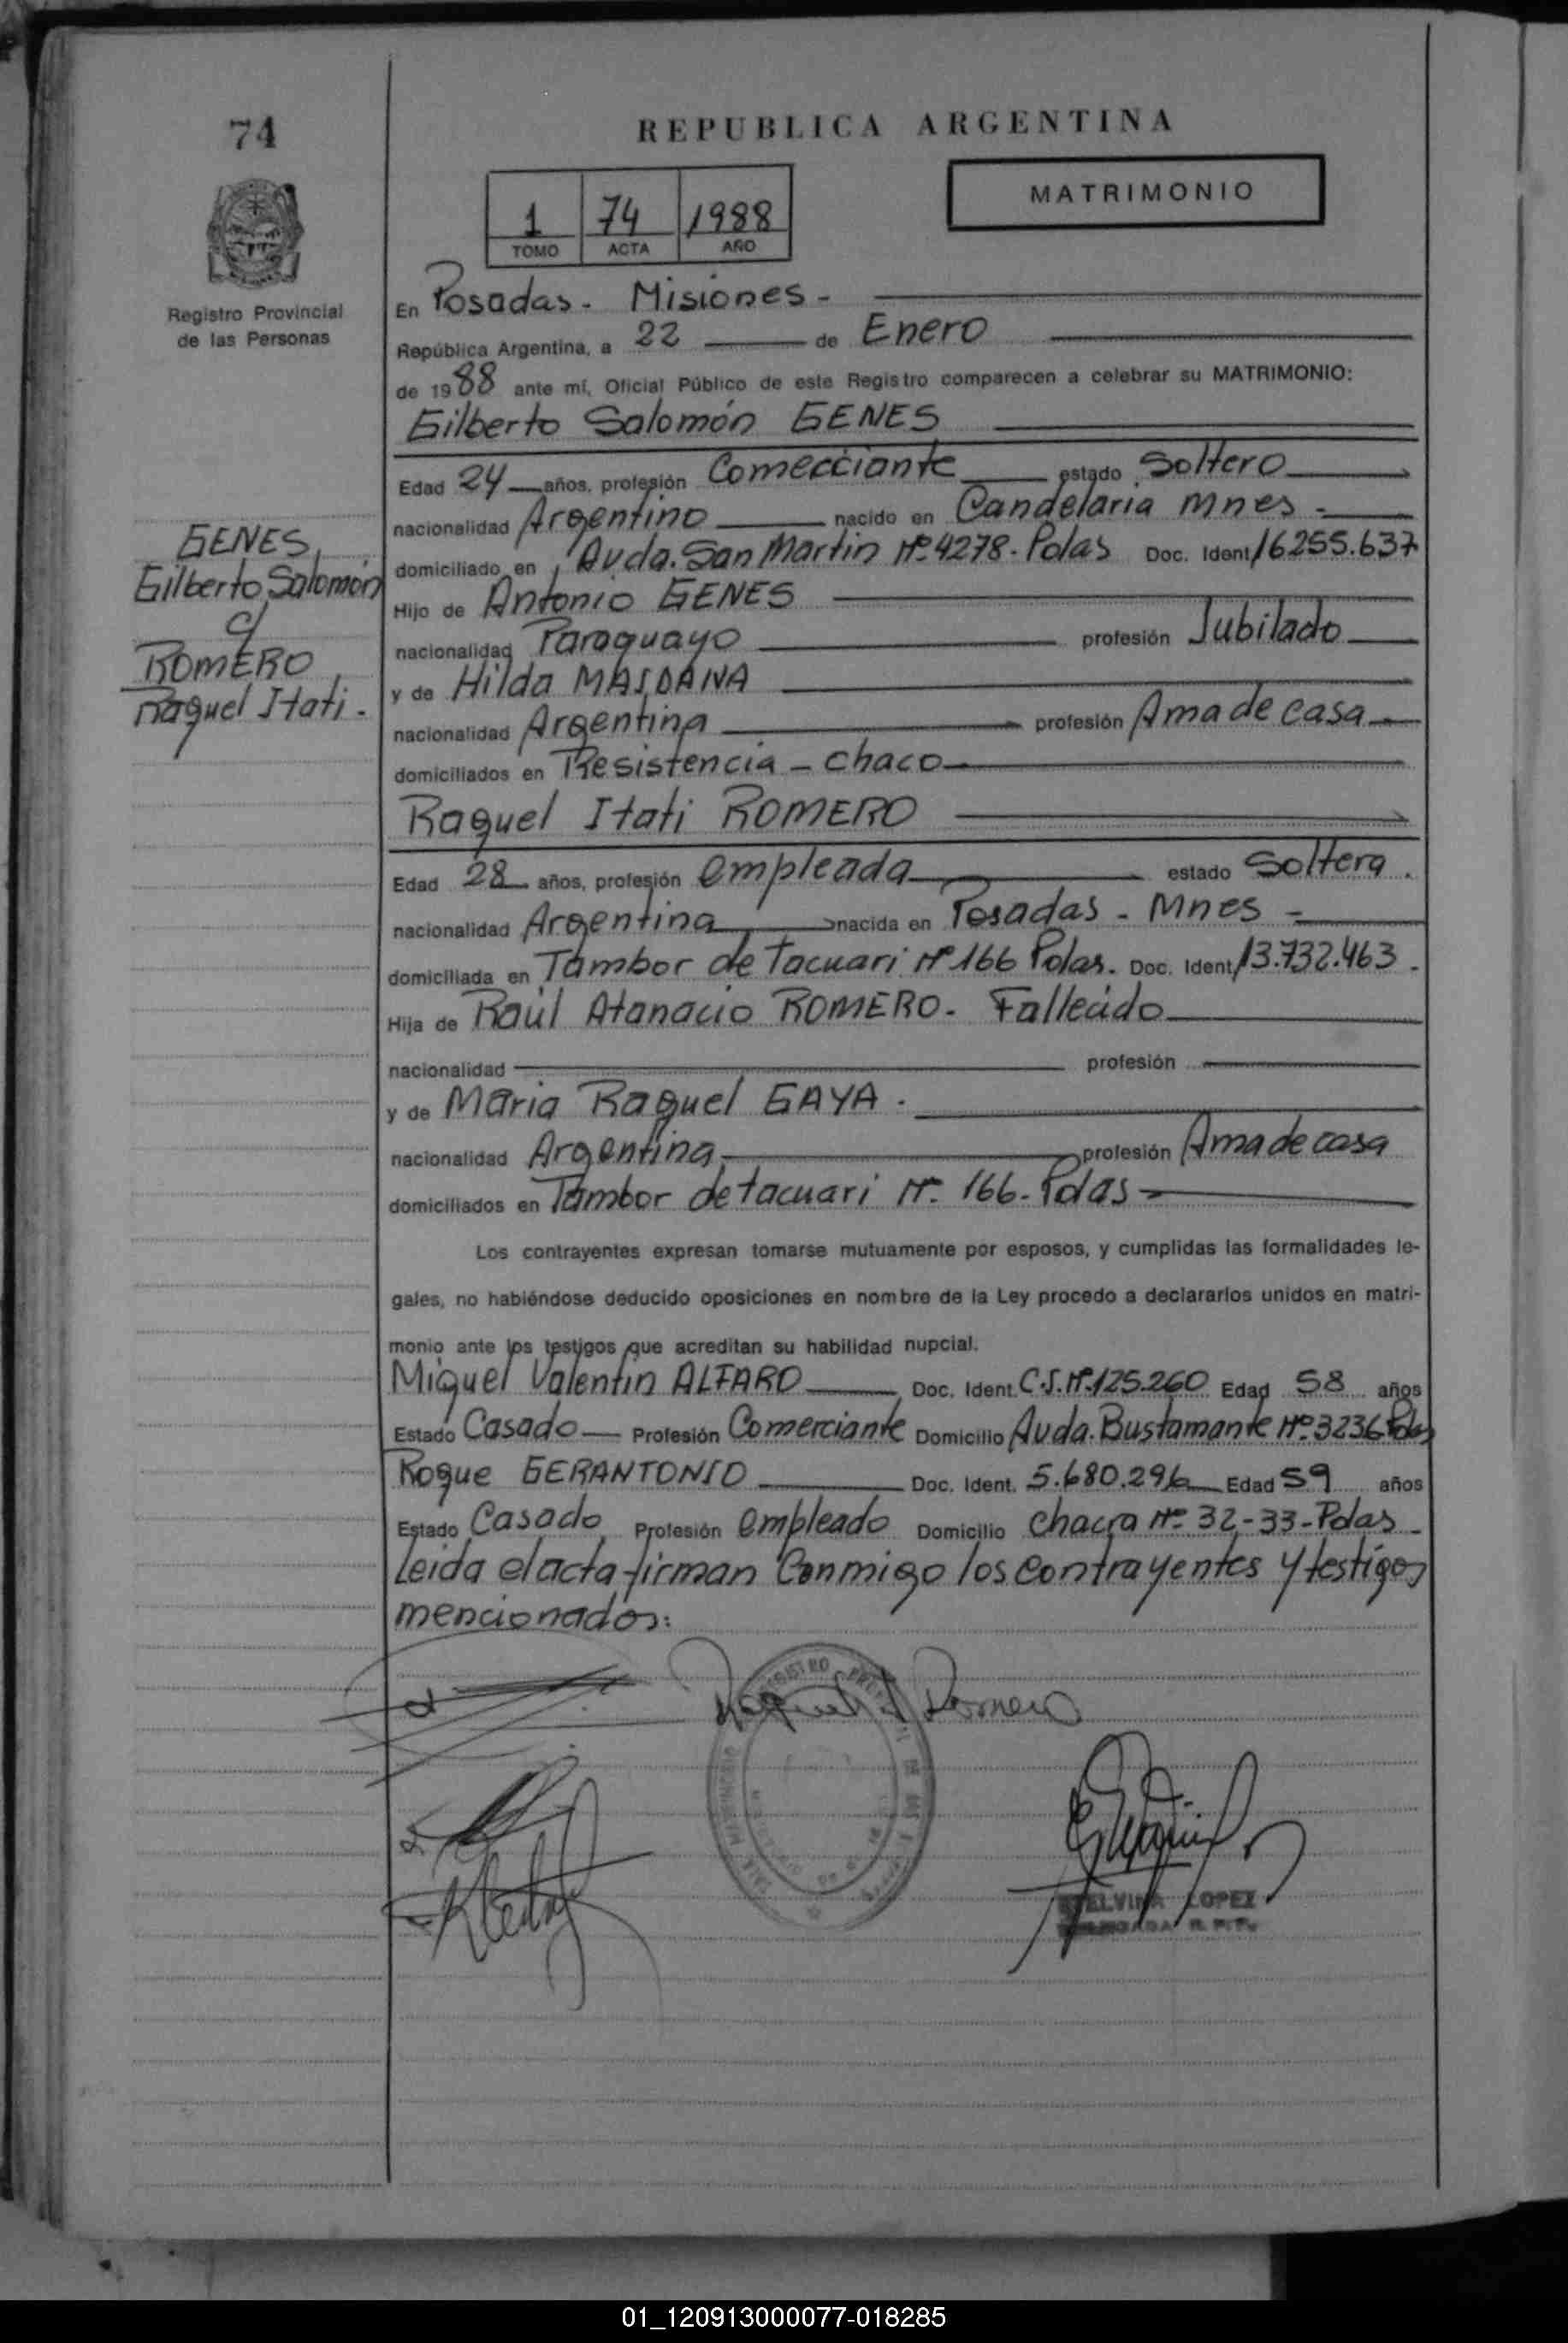 74
REPUBLICA ARGENTINA
MATRIMONIO
1 74 1988
TOMO ACTA AÑO
Registro Provincial
de las Personas
En Posadas - Misiones -
República Argentina, a 22 de Enero
de 1988 ante mí, Oficial Público de este Registro comparecen a celebrar su MATRIMONIO:
Gilberto Salomón GENES
Edad 24 años, profesión Comerciante estado Soltero
nacionalidad Argentino nacido en Candelaria Mnes -
domiciliado en Avda. San Martin Nº 4278 - Pdas Doc. Ident. 16255.637
Hijo de Antonio GENES
nacionalidad Paraguayo profesión Jubilado
y de Hilda MAIDANA
nacionalidad Argentina profesión Ama de casa
domiciliados en Resistencia - Chaco
GENES,
Gilberto Salomón
c/
ROMERO,
Raquel Itati -
Raquel Itati ROMERO
Edad 28 años, profesión empleada estado Soltera.
nacionalidad Argentina nacida en Posadas - Mnes -
domiciliada en Tambor de tacuari Nº 166 Pdas. Doc. Ident. 13.732.463 -
Hija de Raúl Atanacio ROMERO - Fallecido
nacionalidad profesión
y de Maria Raquel GAYA.
nacionalidad Argentina profesión Ama de casa
domiciliados en Tambor de tacuari Nº 166 - Pdas -
Los contrayentes expresan tomarse mutuamente por esposos, y cumplidas las formalidades le-
gales, no habiéndose deducido oposiciones en nombre de la Ley procedo a declararlos unidos en matri-
monio ante los testigos que acreditan su habilidad nupcial.
Miguel Valentin ALFARO Doc. Ident. C.I. Nº 125.260 Edad 58 años
Estado Casado Profesión Comerciante Domicilio Avda. Bustamante Nº 3236 Pdas
Roque GERANTONIO Doc. Ident. 5.680.296 Edad 59 años
Estado Casado Profesión empleado Domicilio Chacra Nº 32-33 - Pdas -
Leida el acta firman Conmigo los contrayentes y testigos
mencionados:
Raquel I Romero
LOPEZ
01_120913000077-018285